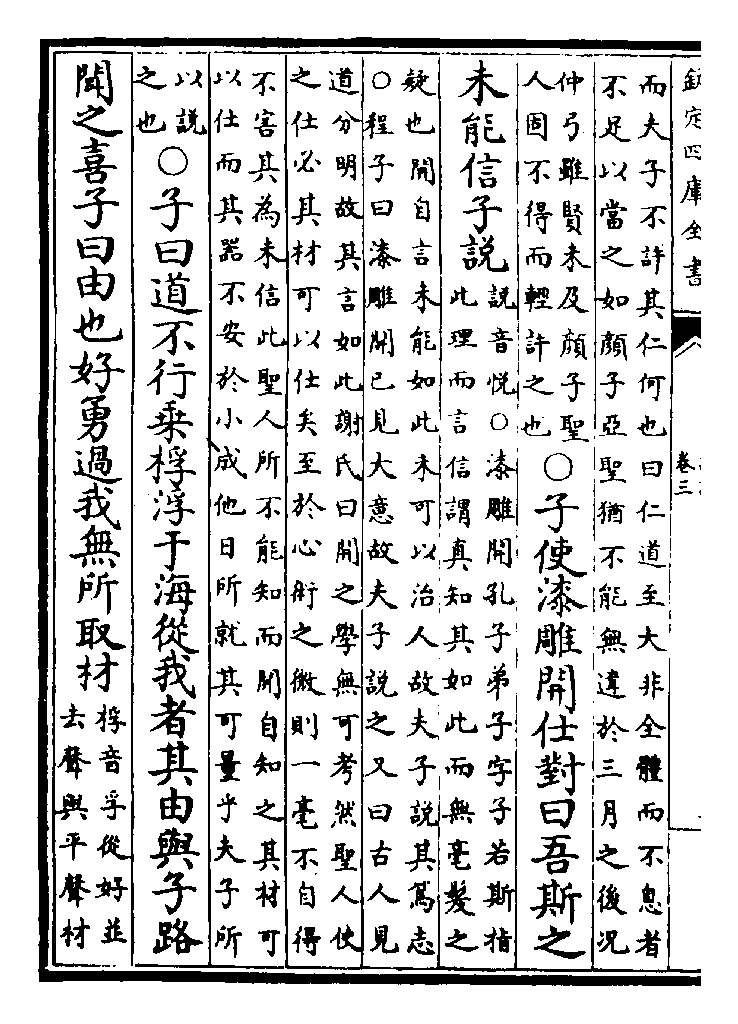 欽定四庫全書
卷三
而夫子不許其仁何也曰仁道至大非全體而不息者
不足以當之如顔子亞聖猶不能無違於三月之後況
仲弓雖賢未及顔子聖
人固不得而輕許之也
○子使漆雕開仕對曰吾斯之
未能信子説
説音悦○漆雕開孔子弟子字子若斯指
此理而言信謂真知其如此而無毫髮之
疑也開自言未能如此未可以治人故夫子説其篤志
○程子曰漆雕開已見大意故夫子説之又曰古人見
道分明故其言如此謝氏曰開之學無可考然聖人使
之仕必其材可以仕矣至於心術之微則一毫不自得
不害其為未信此聖人所不能知而開自知之其材可
以仕而其器不安於小成他日所就其可量乎夫子所
以説
之也
○子曰道不行乗桴浮于海從我者其由與子路
聞之喜子曰由也好勇過我無所取材
桴音孚從好並
去聲與平聲材